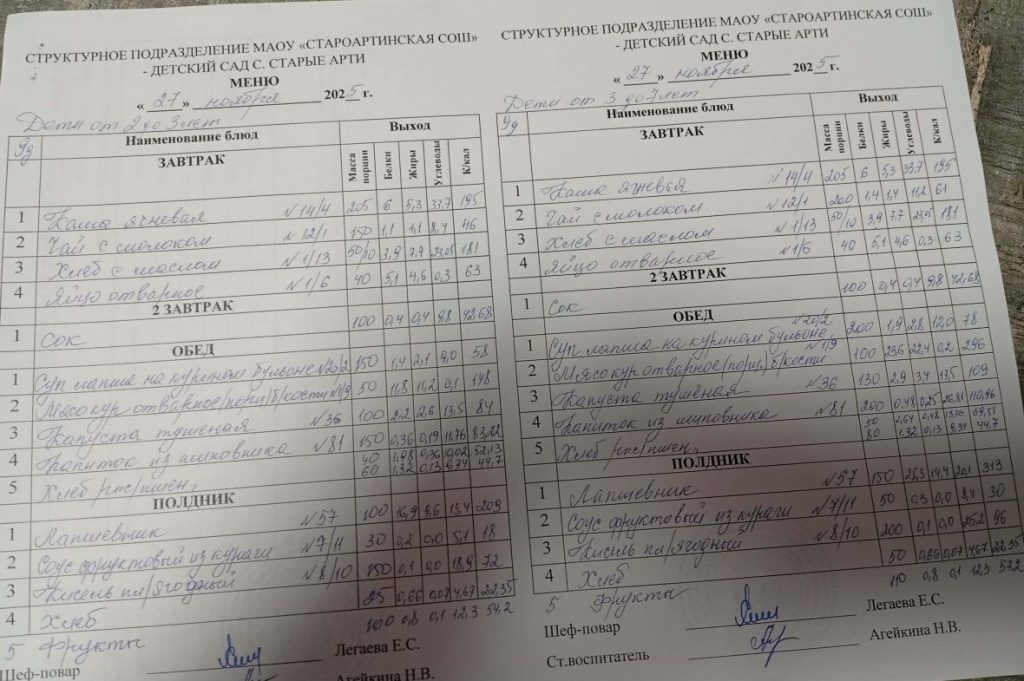 СТРУКТУРНОЕ ПОДРАЗДЕЛЕНИЕ МАОУ «СТАРОАРТИНСКАЯ СОШ»
- ДЕТСКИЙ САД С. СТАРЫЕ АРТИ
МЕНЮ
« 27 » ноября 2025 г.
Дети от 2 до 3 лет
9д Наименование блюд Выход
ЗАВТРАК Масса порции Белки Жиры Углеводы К/кал
1 Каша ячневая №14/4 205 6 5,3 33,7 195
2 Чай с молоком №12/1 150 1,1 1,1 8,4 46
3 Хлеб с маслом №1/13 50/10 3,9 7,7 23,05 181
4 Яйцо отварное №1/6 40 5,1 4,6 0,3 63
2 ЗАВТРАК
1 Сок 100 0,4 0,4 9,8 42,68
ОБЕД
1 Суп лапша на курином бульоне №20/2 150 1,4 2,1 9,0 58
2 Мясо кур отварное/порц/б/кости №1/9 50 11,8 11,2 0,1 148
3 Капуста тушёная №36 100 2,2 2,6 13,5 84
4 Напиток из шиповника №81 150 0,36 0,19 11,76 83,22
5 Хлеб рпс/пшен, 40 1,08 0,36 10,02 52,13
60 1,32 0,13 9,34 44,7
ПОЛДНИК
1 Лапшевник №57 100 16,9 9,6 13,4 209
2 Соус фруктовый из кураги №7/11 30 0,2 0,0 5,1 18
3 Кисель пл/ягодный №8/10 150 0,1 0,0 18,9 72
4 Хлеб 25 0,66 0,07 4,67 22,35
5 Фрукты 100 0,8 0,1 12,3 57,2
Шеф-повар Легаева Е.С.
Агейкина Н.В.
СТРУКТУРНОЕ ПОДРАЗДЕЛЕНИЕ МАОУ «СТАРОАРТИНСКАЯ СОШ»
- ДЕТСКИЙ САД С. СТАРЫЕ АРТИ
МЕНЮ
« 27 » ноября 2025 г.
Дети от 3 до 7 лет
9д Наименование блюд Выход
ЗАВТРАК Масса порции Белки Жиры Углеводы К/кал
1 Каша ячневая №14/4 205 6 5,3 33,7 195
2 Чай с молоком №12/1 200 1,4 1,4 11,2 61
3 Хлеб с маслом №1/13 50/10 3,9 7,7 23,05 181
4 Яйцо отварное №1/6 40 5,1 4,6 0,3 63
2 ЗАВТРАК
1 Сок 100 0,4 0,4 9,8 42,68
ОБЕД
1 Суп лапша на курином бульоне №20/2 200 1,9 2,8 12,0 78
2 Мясо кур отварное/порц/б/кости №1/9 100 23,6 22,4 0,2 296
3 Капуста тушёная №36 130 2,9 3,4 17,5 109
4 Напиток из шиповника №81 200 0,48 0,25 26,81 110,96
5 Хлеб рпс/пшен, 50 2,64 0,48 13,36 69,51
80 1,32 0,13 9,34 44,7
ПОЛДНИК
1 Лапшевник №57 150 25,3 14,4 20,1 313
2 Соус фруктовый из кураги №7/11 50 0,3 0,0 8,4 30
3 Кисель пл/ягодный №8/10 200 0,1 0,0 25,2 96
4 Хлеб 50 0,66 0,07 4,67 22,35
5 Фрукты 110 0,8 0,1 12,3 57,2
Шеф-повар Легаева Е.С.
Ст.воспитатель Агейкина Н.В.